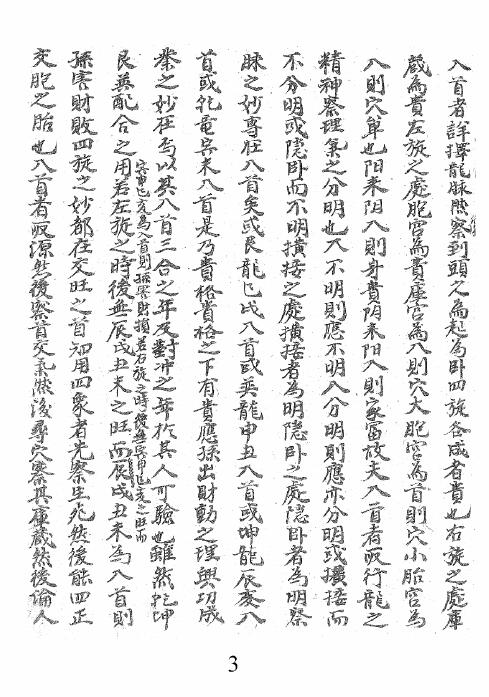 入首者詳擇龍脉然察到頭之為起為卧四旋各成者貴也右旋之處庫
蔵為貴左旋之處胞宮為貴庫宮為入則穴大胞宮為首則穴小胎宮為
入則穴単也阳来阴入則身貴阴来阳入則家富故夫入首者取行龍之
精神察理氣之分明也入不明則應不明入分明則應亦分明或擴接而
不分明或隠卧而不明擴接之處擴接者為明隠卧之處隠卧者為明察
脉之妙專在入首矣或艮龍乙戌入首或巽龍申丑入首或坤龍辰亥入
首或乾龍未入首是乃貴格貴格之下有貴應孫出財動之理與功成
業之妙在焉以其入首三合之年及對冲之年於其人可驗也雖然乾坤
艮巽配合之用若左旋之時後無辰戌丑未之旺而辰戌丑未為入首則
寅申巳亥為入首則孫害財損若右旋之時後無寅申巳亥之旺而
孫害財敗四旋之妙都在交旺之首知用四象者先察生兆然後能四正
交胞之胎也入首者取源然後察首交氣然後尋穴察其庫蔵然後論人
3